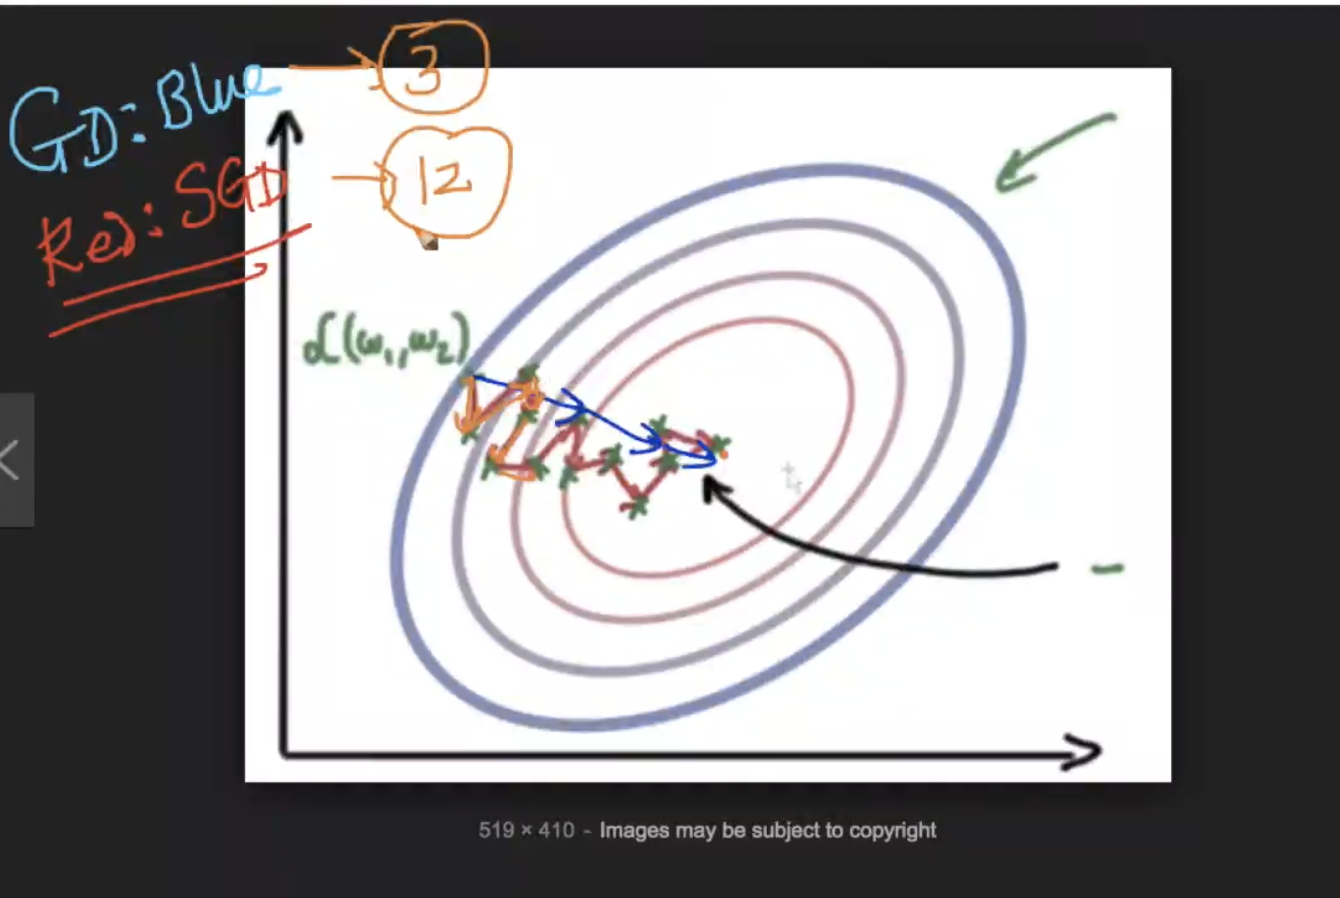 GD: Blue → 3
Red: SGD → 12
L(w₁,w₂)
519 × 410 - Images may be subject to copyright